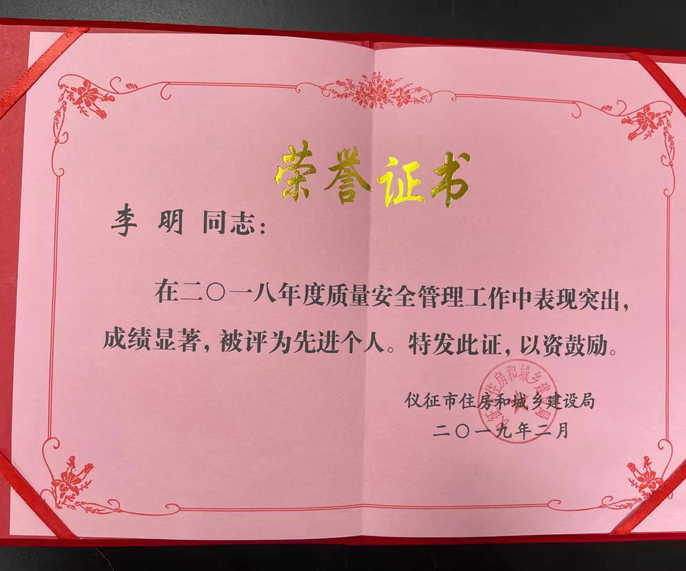 荣誉证书
李 明 同志：
在二〇一八年度质量安全管理工作中表现突出，
成绩显著，被评为先进个人。特发此证，以资鼓励。
仪征市住房和城乡建设局
二〇一九年二月